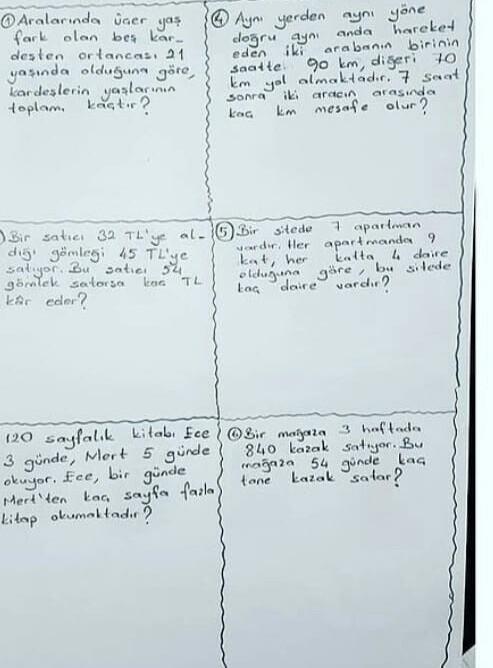 ① Aralarında üçer yaş
fark olan beş kar-
desten ortancası 21
yaşında olduğuna göre,
kardeşlerin yaşlarının
toplamı kaçtır?
) Bir satıcı 32 TL'ye al-
dığı gömleği 45 TL'ye
satıyor. Bu satıcı 54
gömlek satarsa kaç TL
kâr eder?
120 sayfalık kitabı Ece
3 günde, Mert 5 günde
okuyor. Ece, bir günde
Mert'ten kaç sayfa fazla
kitap okumaktadır?
④ Aynı yerden aynı yöne
doğru aynı anda hareket
eden iki arabanın birinin
saatte 90 km, diğeri 70
km yol almaktadır. 7 saat
sonra iki aracın arasında
kaç km mesafe olur?
⑤ Bir sitede 7 apartman
vardır. Her apartmanda 9
kat, her katta 4 daire
olduğuna göre, bu sitede
kaç daire vardır?
⑥ Bir mağaza 3 haftada
840 kazak satıyor. Bu
mağaza 54 günde kaç
tane kazak satar?